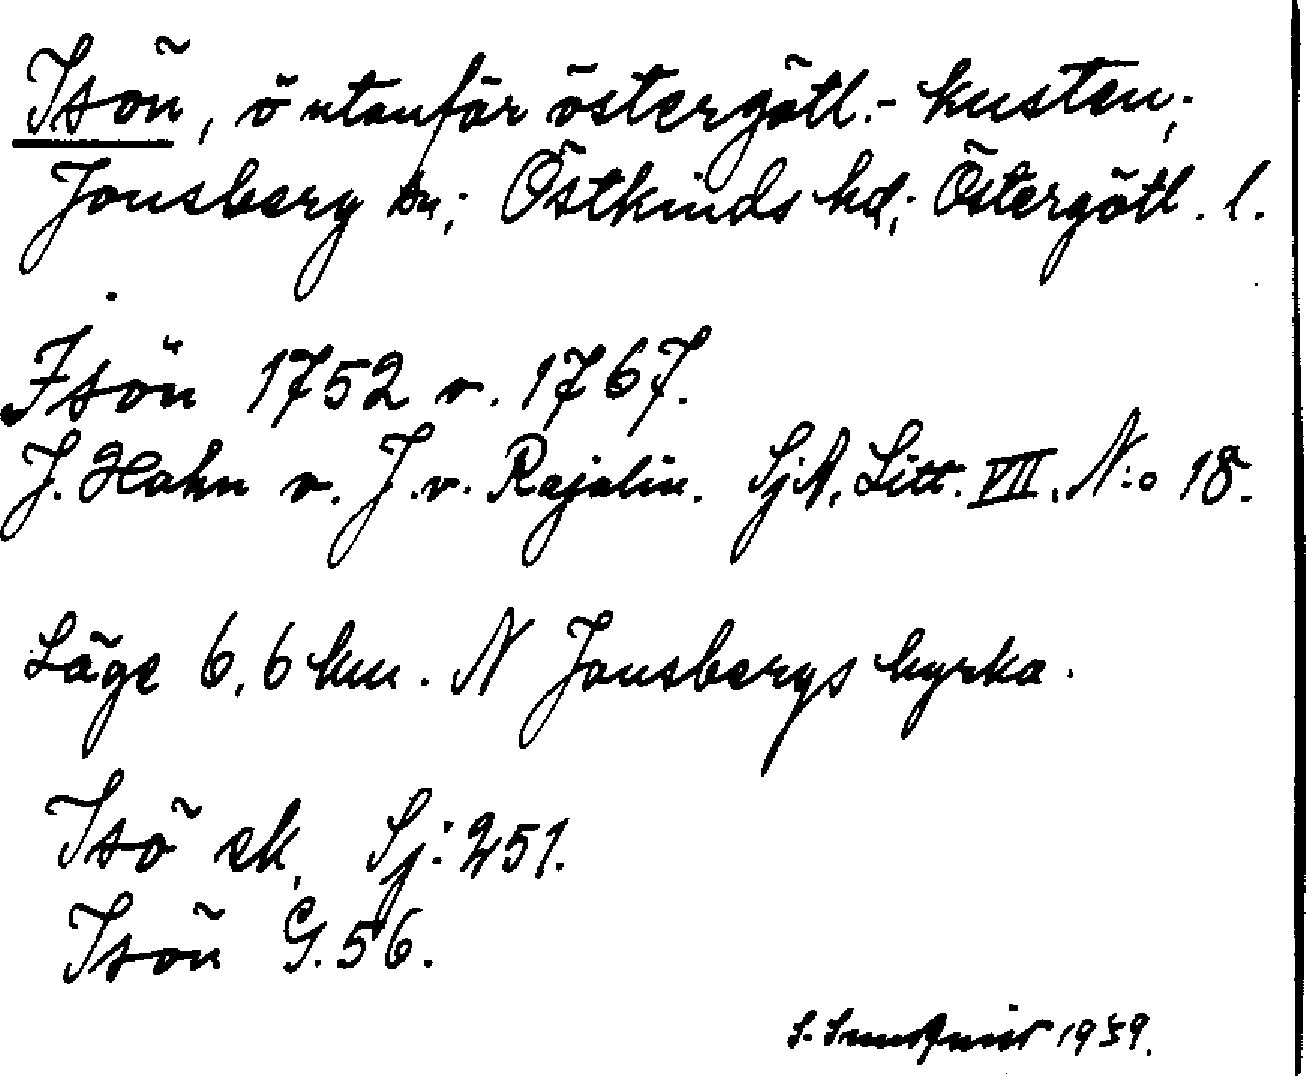 Isön, ö utanför östergötl.- kusten;
Jonsberg sn; Östkinds hd; Östergötl. l.
Isön 1752 o. 1767.
J. Hahn o. J. v. Rajalin. SjA, Litt. VII. N:o 18.
Läge 6,6 km. N Jonsbergs kyrka.
Isö ek. Sj: 251.
Isön G. 56.
S. 1959.